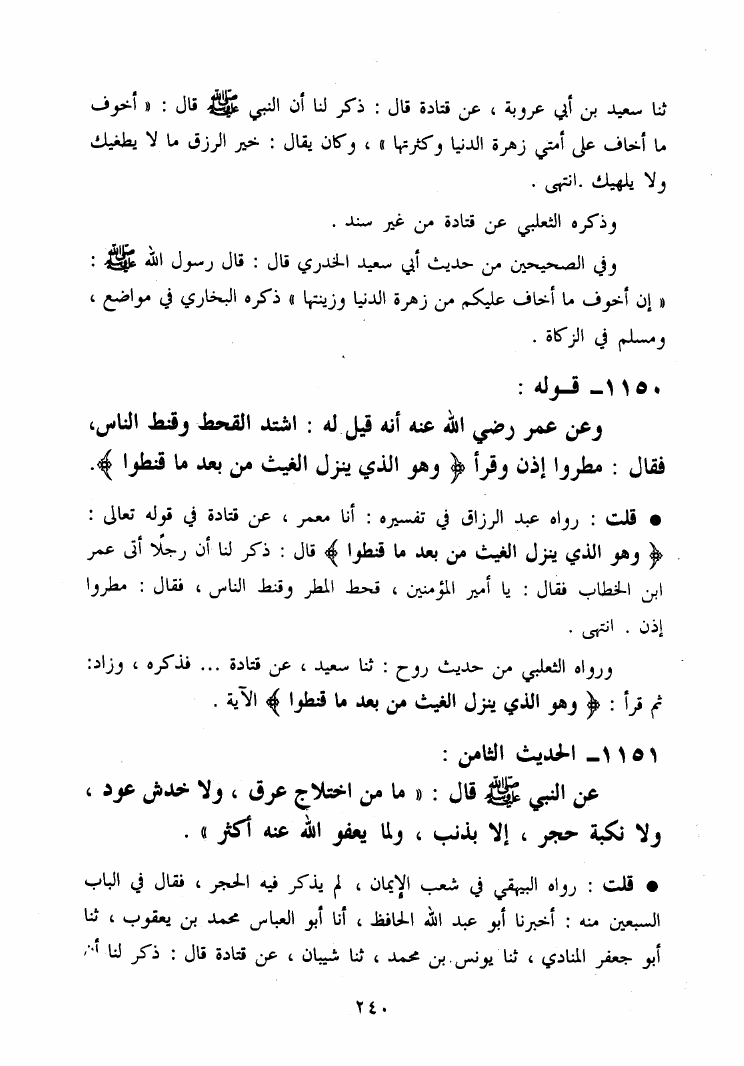 ثنا سعيد بن أبي عروبة ، عن قتادة قال : ذكر لنا أن النبي ﷺ قال : « أخوف
ما أخاف على أمتي زهرة الدنيا وكثرتها » ، وكان يقال : خير الرزق ما لا يطغيك
ولا يلهيك .انتهى .
وذكره الثعلبي عن قتادة من غير سند .
وفي الصحيحين من حديث أبي سعيد الخدري قال : قال رسول الله ﷺ :
« إن أخوف ما أخاف عليكم من زهرة الدنيا وزينتها » ذكره البخاري في مواضع ،
ومسلم في الزكاة .
١١٥٠ـ قـوله :
وعن عمر رضي الله عنه أنه قيل له : اشتد القحط وقنط الناس،
فقال : مطروا إذن وقرأ ﴿ وهو الذي ينزل الغيث من بعد ما قنطوا ﴾.
● قلت : رواه عبد الرزاق في تفسيره : أنا معمر ، عن قتادة في قوله تعالى :
﴿ وهو الذي ينزل الغيث من بعد ما قنطوا ﴾ قال : ذكر لنا أن رجلًا أتى عمر
ابن الخطاب فقال : يا أمير المؤمنين ، قحط المطر وقنط الناس ، فقال : مطروا
إذن . انتهى .
ورواه الثعلبي من حديث روح : ثنا سعيد ، عن قتادة ... فذكره ، وزاد:
ثم قرأ : ﴿ وهو الذي ينزل الغيث من بعد ما قنطوا ﴾ الآية .
١١٥١ـ الحديث الثامن :
عن النبي ﷺ قال : « ما من اختلاج عرق ، ولا خدش عود ،
ولا نكبة حجر ، إلا بذنب ، ولما يعفو الله عنه أكثر » .
● قلت : رواه البيهقي في شعب الإيمان ، لم يذكر فيه الحجر ، فقال في الباب
السبعين منه : أخبرنا أبو عبد الله الحافظ ، أنا أبو العباس محمد بن يعقوب ، ثنا
أبو جعفر المنادي ، ثنا يونس بن محمد ، ثنا شيبان ، عن قتادة قال : ذكر لنا أن
٢٤٠